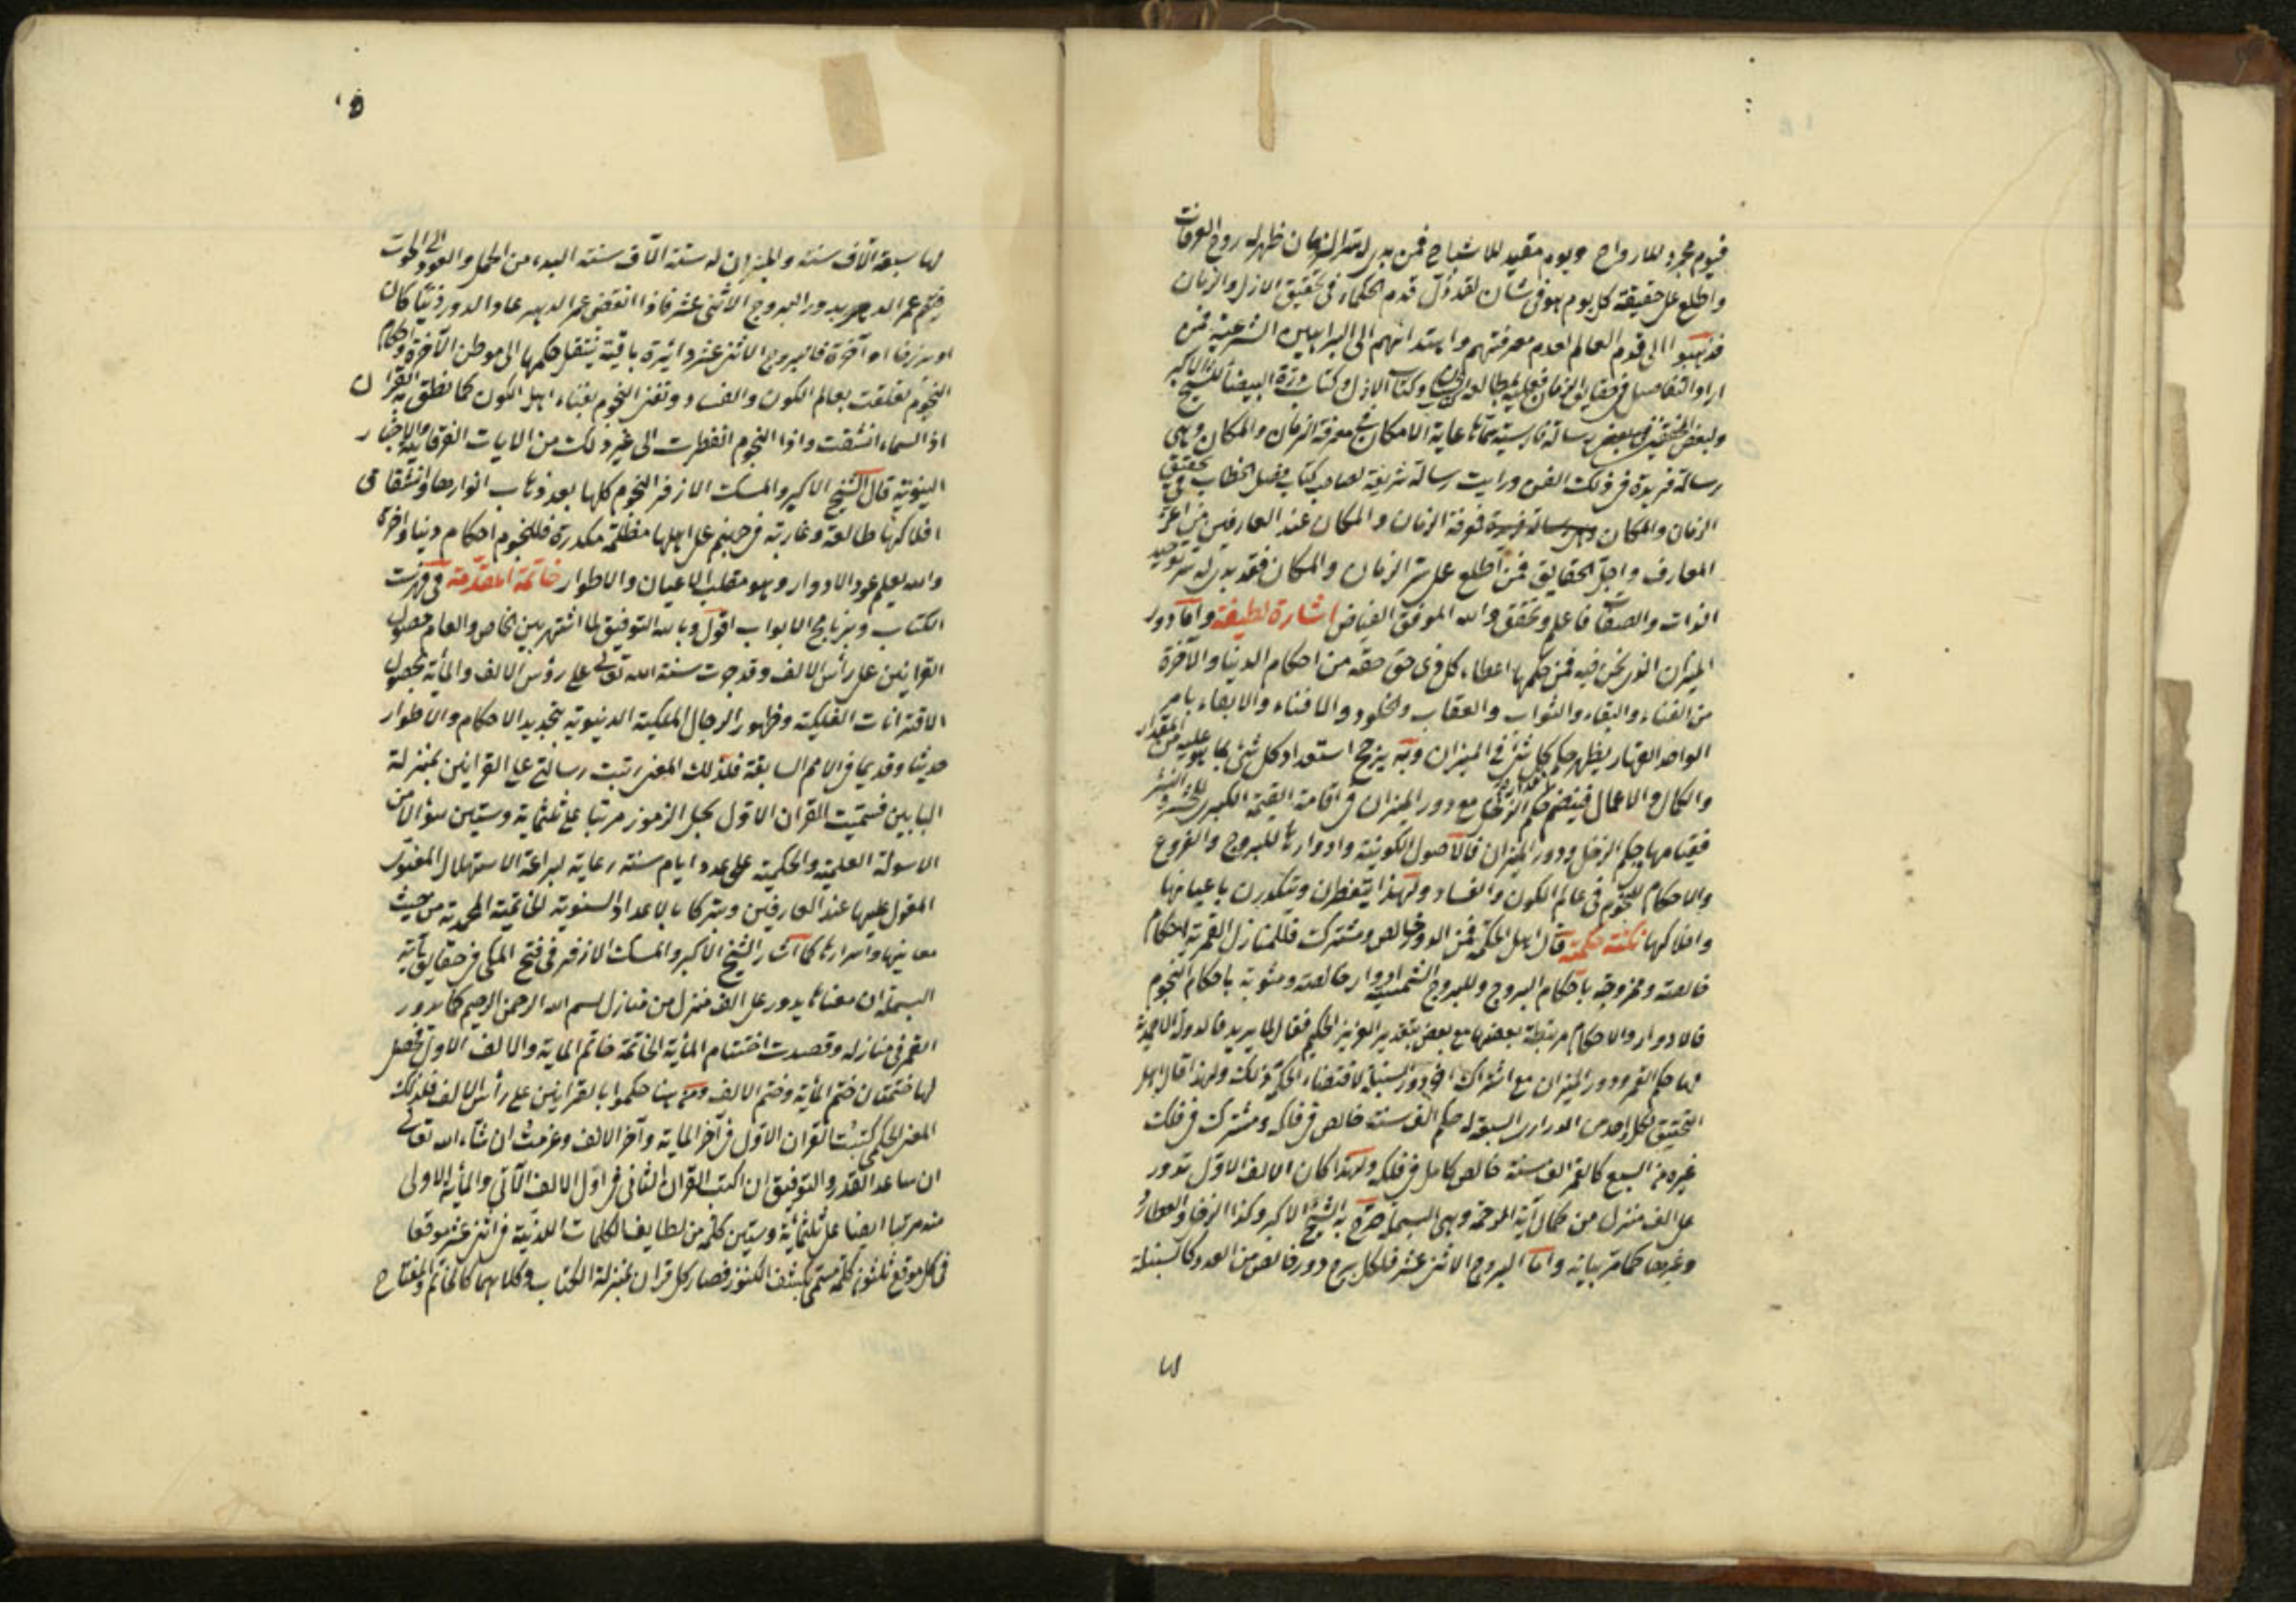 فيوم مجرد للارواح ويوم مقيد للاشباح فمن بدى له سر الزمان ظهر له روح العرفان
واطلع على حقيقة كل يوم هو فى شان لقد زل قدم الحكماء فى تحقيق الازل والزمان
فذهبوا الى قدم العالم لعدم معرفتهم واهتدائهم الى البراهين الشرعية فمن
اراد التفاصيل فى حقايق الزمان فعليه بمطالعة وكتاب الازل وكتاب درة البيضاء للشيخ الاكبر
ولبعض المحققين رسالة فارسية سماها غاية الامكان فى معرفة الزمان والمكان وهى
رسالة فريدة فى ذلك الفن ورايت رسالة شريفة لصاحب كتاب فصل الخطاب فى تحقيق
الزمان والمكان فمعرفة الزمان والمكان عند العارفين من اعز
المعارف واجل الحقايق فمن اطلع على سر الزمان والمكان فقد بدى له سر توحيد
الذات والصفات فاعلم وتحقق والله الموفق الفياض اشارة لطيفة واما دور
الميزان الذى نحن فيه فمن حكمها اعطاء كل ذى حق حقه من احكام الدنيا والآخرة
من الفناء والبقاء والثواب والعقاب والخلود والافناء والابقاء بامر
الواحد القهار يظهر حكم كل شئ فى الميزان وبه يرجح استعداد كل شئ بما هو عليه من المقدار
والكمال والاعمال فينضم حكم الزحل مع دور الميزان فى اقامة القيمة الكبرى للحشر والنشر
فقيامها بحكم الزحل ودور الميزان فالاصول الكونية وادوارها للبروج والفروع
والاحكام للنجوم فى عالم الكون والفساد ولهذا يتفطرن ويتكدرن باعيانها
وافلاكها نكتة حكمية قال اهل الحكمة فمن الدور خالص ومشترك فللمنازل القمرية احكام
خالصة وممزوجة باحكام البروج وللبروج الشمسية ادوار خالصة ومشوبة باحكام النجوم
فالادوار والاحكام مرتبطة بعضها مع بعض بتقدير العزيز الحكيم فعال لما يريد فالدولة الاحمدية
لها حكم القمر ودور الميزان مع اشتراك دور السنبلة لاقتضاء الحكمة ذلك ولهذا قال اهل
التحقيق لكل واحد من الدرارى السبعة له حكم الف سنة خالص فى فلكه ومشترك فى فلك
غيره من السبع كالقمر الف سنة خالص كامل فى فلكه ولهذا كان الالف الاول تدور
على الف منزل من كمال آية الرحمة وهى البسملة صرح به الشيخ الاكبر وكذا الزحل والعطارد
وغيرها كما مر بيانه واما البروج الاثنى عشر فلكل برج دور خالص من العدد كالسنبلة
لها
لها سبعة آلاف سنة والميزان له ستة الآف سنة البدء من الحمل والعود الى الحوت
فيختم عمر الدهر بدور البروج الاثنى عشر فاذا انقضى عمر الدهر عاد الدور دنيا كان
او برزخا او آخرة فالبروج الاثنى عشر دائرة باقية ينتقل حكمها الى موطن الآخرة واحكام
النجوم تعلقت بعالم الكون والفساد وتفنى النجوم بفناء اهل الكون كما نطق به القرآن
اذا السماء انشقت واذا النجوم انفطرت الى غير ذلك من الايات الفرقانية والاخبار
النبوية قال الشيخ الاكبر والمسك الازفر النجوم كلها بعد ذهاب انوارها وانشقاق
افلاكها طالعة وغاربة فى جهنم على اهلها مظلمة مكدرة فللنجوم احكام دنيا وآخرة
والله يعلم عود الادوار وهو مقلب الاعيان والاطوار خاتمة المقدمة فى فهرست
الكتاب وبرنامج الابواب اقول وبالله التوفيق لما اشتهر بين الخاص والعام حصول
القرانين على رأس الالف وقد جرت سنة الله تعالى على رؤس الالف والمأية بحصول
الاقترانات الفلكية وظهور الرجال الملكية الدنيوية بتجديد الاحكام والاطوار
حديثا وقديما فى الامم السابقة فلذلك المعنى رتبت رسالتى على القرانين بمنزلة
البابين فسميت القران الاول بحل الرموز مرتبا على ثلثمائة وستين سؤالا من
الاسولة العلمية والحكمية على عدد ايام سنة رعاية لبراعة الاستهلال المعتبر
المقول عليها عند العارفين وتبركا بالاعداد السنوية الخاتمية المحمدية من حيث
معانيها واسرارها كما اشار الشيخ الاكبر والمسك الازفر فى فتح المكى فى حقايق آية
البسملة ان معناها يدور على الف منزل من منازل بسم الله الرحمن الرحيم كما يدور
القمر فى منازله وقصدت اختتام المأية الخاتمة خاتم الماية والالف الاول فحصل
لها ختمتان ختم المأية وختم الالف ومن هنا حكموا بالقرانين على رأس الالف فلذلك
المعنى الحكمى كتبت القران الاول فى آخر الماية وآخر الالف وعزمت ان شاء الله تعالى
ان ساعد القدر والتوفيق ان اكتب القران الثانى فى اول الالف الآتى والمأية الاولى
منه مرتبا ايضا على ثلثمائة وستين كلمة من لطايف الكلمات اللدنية فى اثنى عشر موقعا
فى كل موقع ثلثون كلمة مسمى بكشف الكنوز فصار كل قران بمنزلة الكتاب وكلاهما كالخاتم والمفتاح